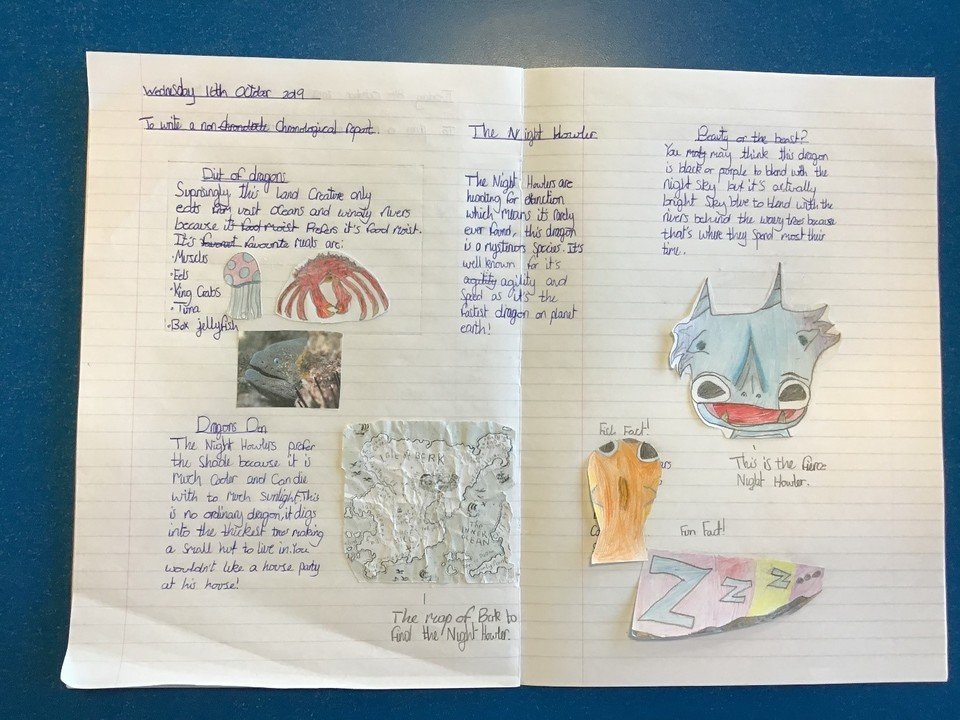 Wednesday 16th October 2019
To write a non chronological report.
Diet of dragons
Suprisingly this Land Creature only
eats from vast oceans and windy rivers
because it food moist Prefers it's food moist.
It's favourite meals are:
•Muscles
•Eels
•King Crabs
•Tuna
•Box jellyfish
Dragons Den
The Night Howlers prefer
the Shade because it is
Much Cooler and Can die
with to Much Sunlight. This
is no ordinary dragon, it digs
into the thickest tree making
a small hut to live in. You
wouldn't like a house party
at his house!
ISLE OF BERK
The map of Berk to
find the Night Howler.
The Night Howler
The Night Howlers are
heading for extinction
which means its rarely
ever found, this dragon
is a mysterious species. It's
well known for it's
agility and
Speed as it's the
fastest dragon on planet
earth!
Beauty or the beast?
You may think this dragon
is black or purple to blend with the
night sky but it's actually
bright sky blue to blend with the
rivers behind the wavy trees because
that's where they spend most their
time.
This is the fierce
Night Howler.
Fun Fact!
Z z z ...